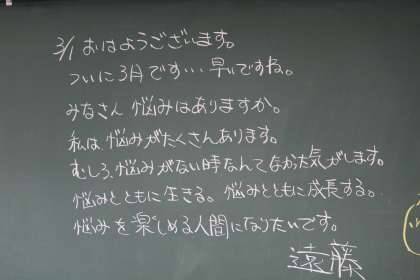 3/1 おはようございます。
ついに3月です… 早いですね。
みなさん 悩みはありますか。
私は、悩みがたくさんあります。
むしろ、悩みがない時なんてなかった気がします。
悩みとともに生きる。悩みとともに成長する。
悩みを楽しめる人間になりたいです。
遠藤